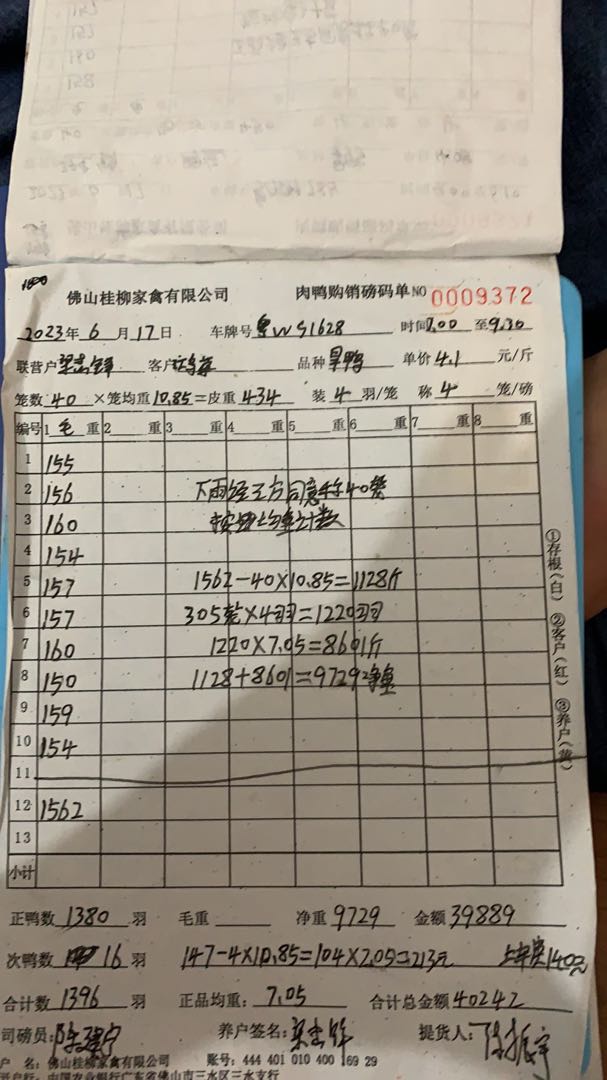 佛山桂柳家禽有限公司 肉鸭购销磅码单 NO 0009372
2023年 6 月 17 日 车牌号 粤W91628 时间 7.00 至 9.30
联营户 客户 品种 旱鸭 单价 4.1 元/斤
笼数 40 ×笼均重 10.85 =皮重 434 装 4 羽/笼 称 4 笼/磅
编号 1 毛 重 2 重 3 重 4 重 5 重 6 重 7 重 8 重
1 155
2 156 下雨经三方同意称40笼
3 160 按 均重计数
4 154
5 157 1562-40×10.85=1128斤
6 157 305笼×4羽=1220羽
7 160 1220×7.05=8601斤
8 150 1128+8601=9729净重
9 159
10 154
11
12 1562
13
小计
①存根(白) ②客户(红) ③养户(黄)
正鸭数 1380 羽 毛重 净重 9729 金额 39889
次鸭数 16 羽 147-4×10.85=104×2.05=213元 140元
合计数 1396 羽 正品均重: 7.05 合计总金额 40242
司磅员: 养户签名: 提货人:
户 名: 佛山桂柳家禽有限公司 账号: 444 401 010 400 169 29
开户行: 中国农业银行广东省佛山市三水区三水支行